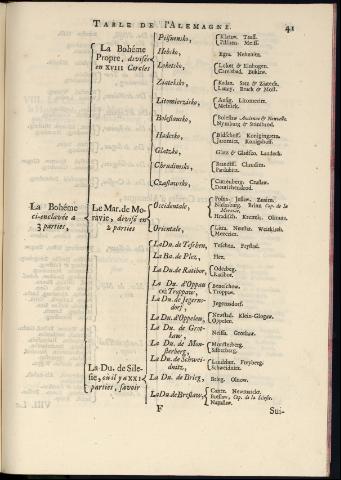 TABLE DE l'ALEMAGNE. 41
La Bohéme
Propre, divisée
en XVIII Cercles
Pilsensko,
Klataw. Tausk.
Pilsen. Meiss.
Hebsko,
Egra.
Loketsko,
Loket & Elnbogen.
Carlsbad.
Ziatetsko,
Kadan. Satz & Ziatetz.
Launy. Bruck & Most.
Litomierzicko,
Aussig. Litomeritz.
Melnick.
Boleslawsko,
Boleslaw Ancienne & Nouvelle.
Nymburg &
Hadecko,
Bidschoff. Konigingretz.
Jaromitz. Konigshoff.
Glatzko,
Glatz & Gladsko. Landeck.
Chrudimsko,
Brandiss. Chrudim.
Pardubitz.
Czaslawsko,
Cuttenberg. Czaslaw.
La Bohéme
ci-enclavée a
3 parties,
Le Mar. de Mo-
ravie, divisé en
2 parties
Occidentale,
Polna. Iglaw. Znaim.
Brinn Cap. de la
Moravie.
Hradisch. Kremsir. Olmutz.
Orientale,
La Du. de Sile-
sie, où il y a XXI
parties, savoir
La Du. de Teschen,
Teschen. Frystad.
La Ba. de Plez,
Plez.
La Du. de Ratibor,
Oderberg.
Ratibor.
La Du. d'Oppau
ou Troppaw,
Beneschow.
Troppaw.
La Du. de Jegerns-
dorf,
Jegernsdorf.
La Du. d'Oppelen,
Neustad. Klein-Glogaw.
Oppelen.
La Du. de Grot-
kaw,
Neissa. Grotkaw.
La Du. de Mon-
sterberg,
Monsterberg.
Silberberg.
La Du. de Schwei-
dnitz,
Landshut. Freyberg.
Schweidnitz.
La Du. de Brieg,
Brieg. Olaow.
La Du. de Breslaw,
Cante. Neumarckt.
Breslaw, Cap. de la Silesie.
Namslaw.
F
Sui-